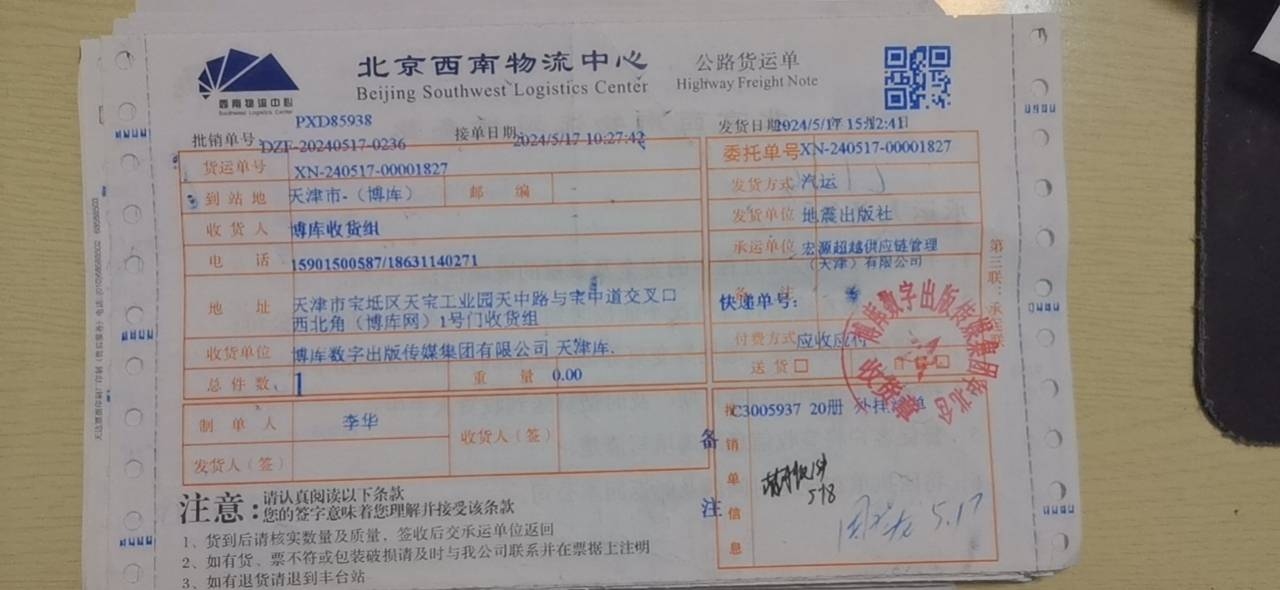 北京西南物流中心 公路货运单
Beijing Southwest Logistics Center Highway Freight Note
西南物流中心
Southwest Logistics Center
PXD85938
批销单号 DZF-20240517-0236 接单日期 2024/5/17 10:27:42 发货日期 2024/5/17 15:12:41
货运单号 XN-240517-00001827 委托单号 XN-240517-00001827
到站地 天津市-（博库） 邮编 发货方式 汽运
收货人 博库收货组 发货单位 地震出版社
电话 15901500587/18631140271 承运单位 宏源超越供应链管理
（天津）有限公司
地址 天津市宝坻区天宝工业园天中路与宝中道交叉口
西北角（博库网）1号门收货组
快递单号：
收货单位 博库数字出版传媒集团有限公司 天津库. 付费方式 应收应付
总件数 1 重量 0.00 送货□
制单人 李华 收货人（签）
发货人（签）
备注
批销单信息 C3005937 20册
578
5.17
第三联：承运联
博库数字出版传媒集团华北仓
收货章
注意： 请认真阅读以下条款
您的签字意味着您理解并接受该条款
1、货到后请核实数量及质量，签收后交承运单位返回
2、如有货、票不符或包装破损请及时与我公司联系并在票据上注明
3、如有退货请退到丰台站